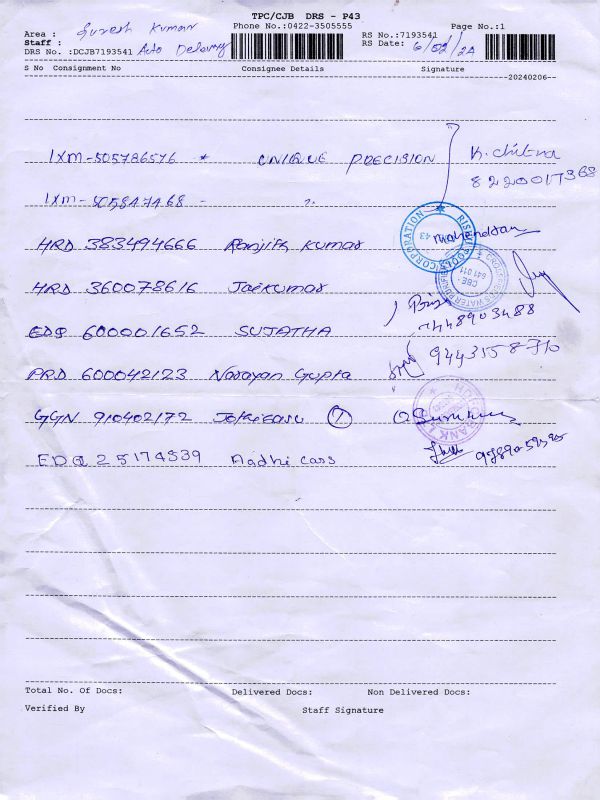 TPC/CJB DRS - P43
Area : Suresh Kumar Phone No.:0422-3505555 Page No.:1
Staff : RS No.:7193541
DRS No. :DCJB7193541 Auto Delivery RS Date: 6/02/24
S No Consignment No Consignee Details Signature
20240206
IXM-505786576 * UNIQUE PRECISION K. Chitra
8220017368
IXM-505847468 - "
HRD 383494666 Ranjith Kumar Mahendran
HRD 360078616 Jaikumar
7448903488
EDQ 600001652 SUJATHA
9443158770
PRD 600042123 Narayan Gupta
GGN 910402172 7
EDQ 25174539 Aadhi Cars
Total No. Of Docs: Delivered Docs: Non Delivered Docs:
Verified By Staff Signature